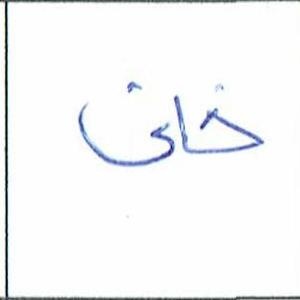 خان